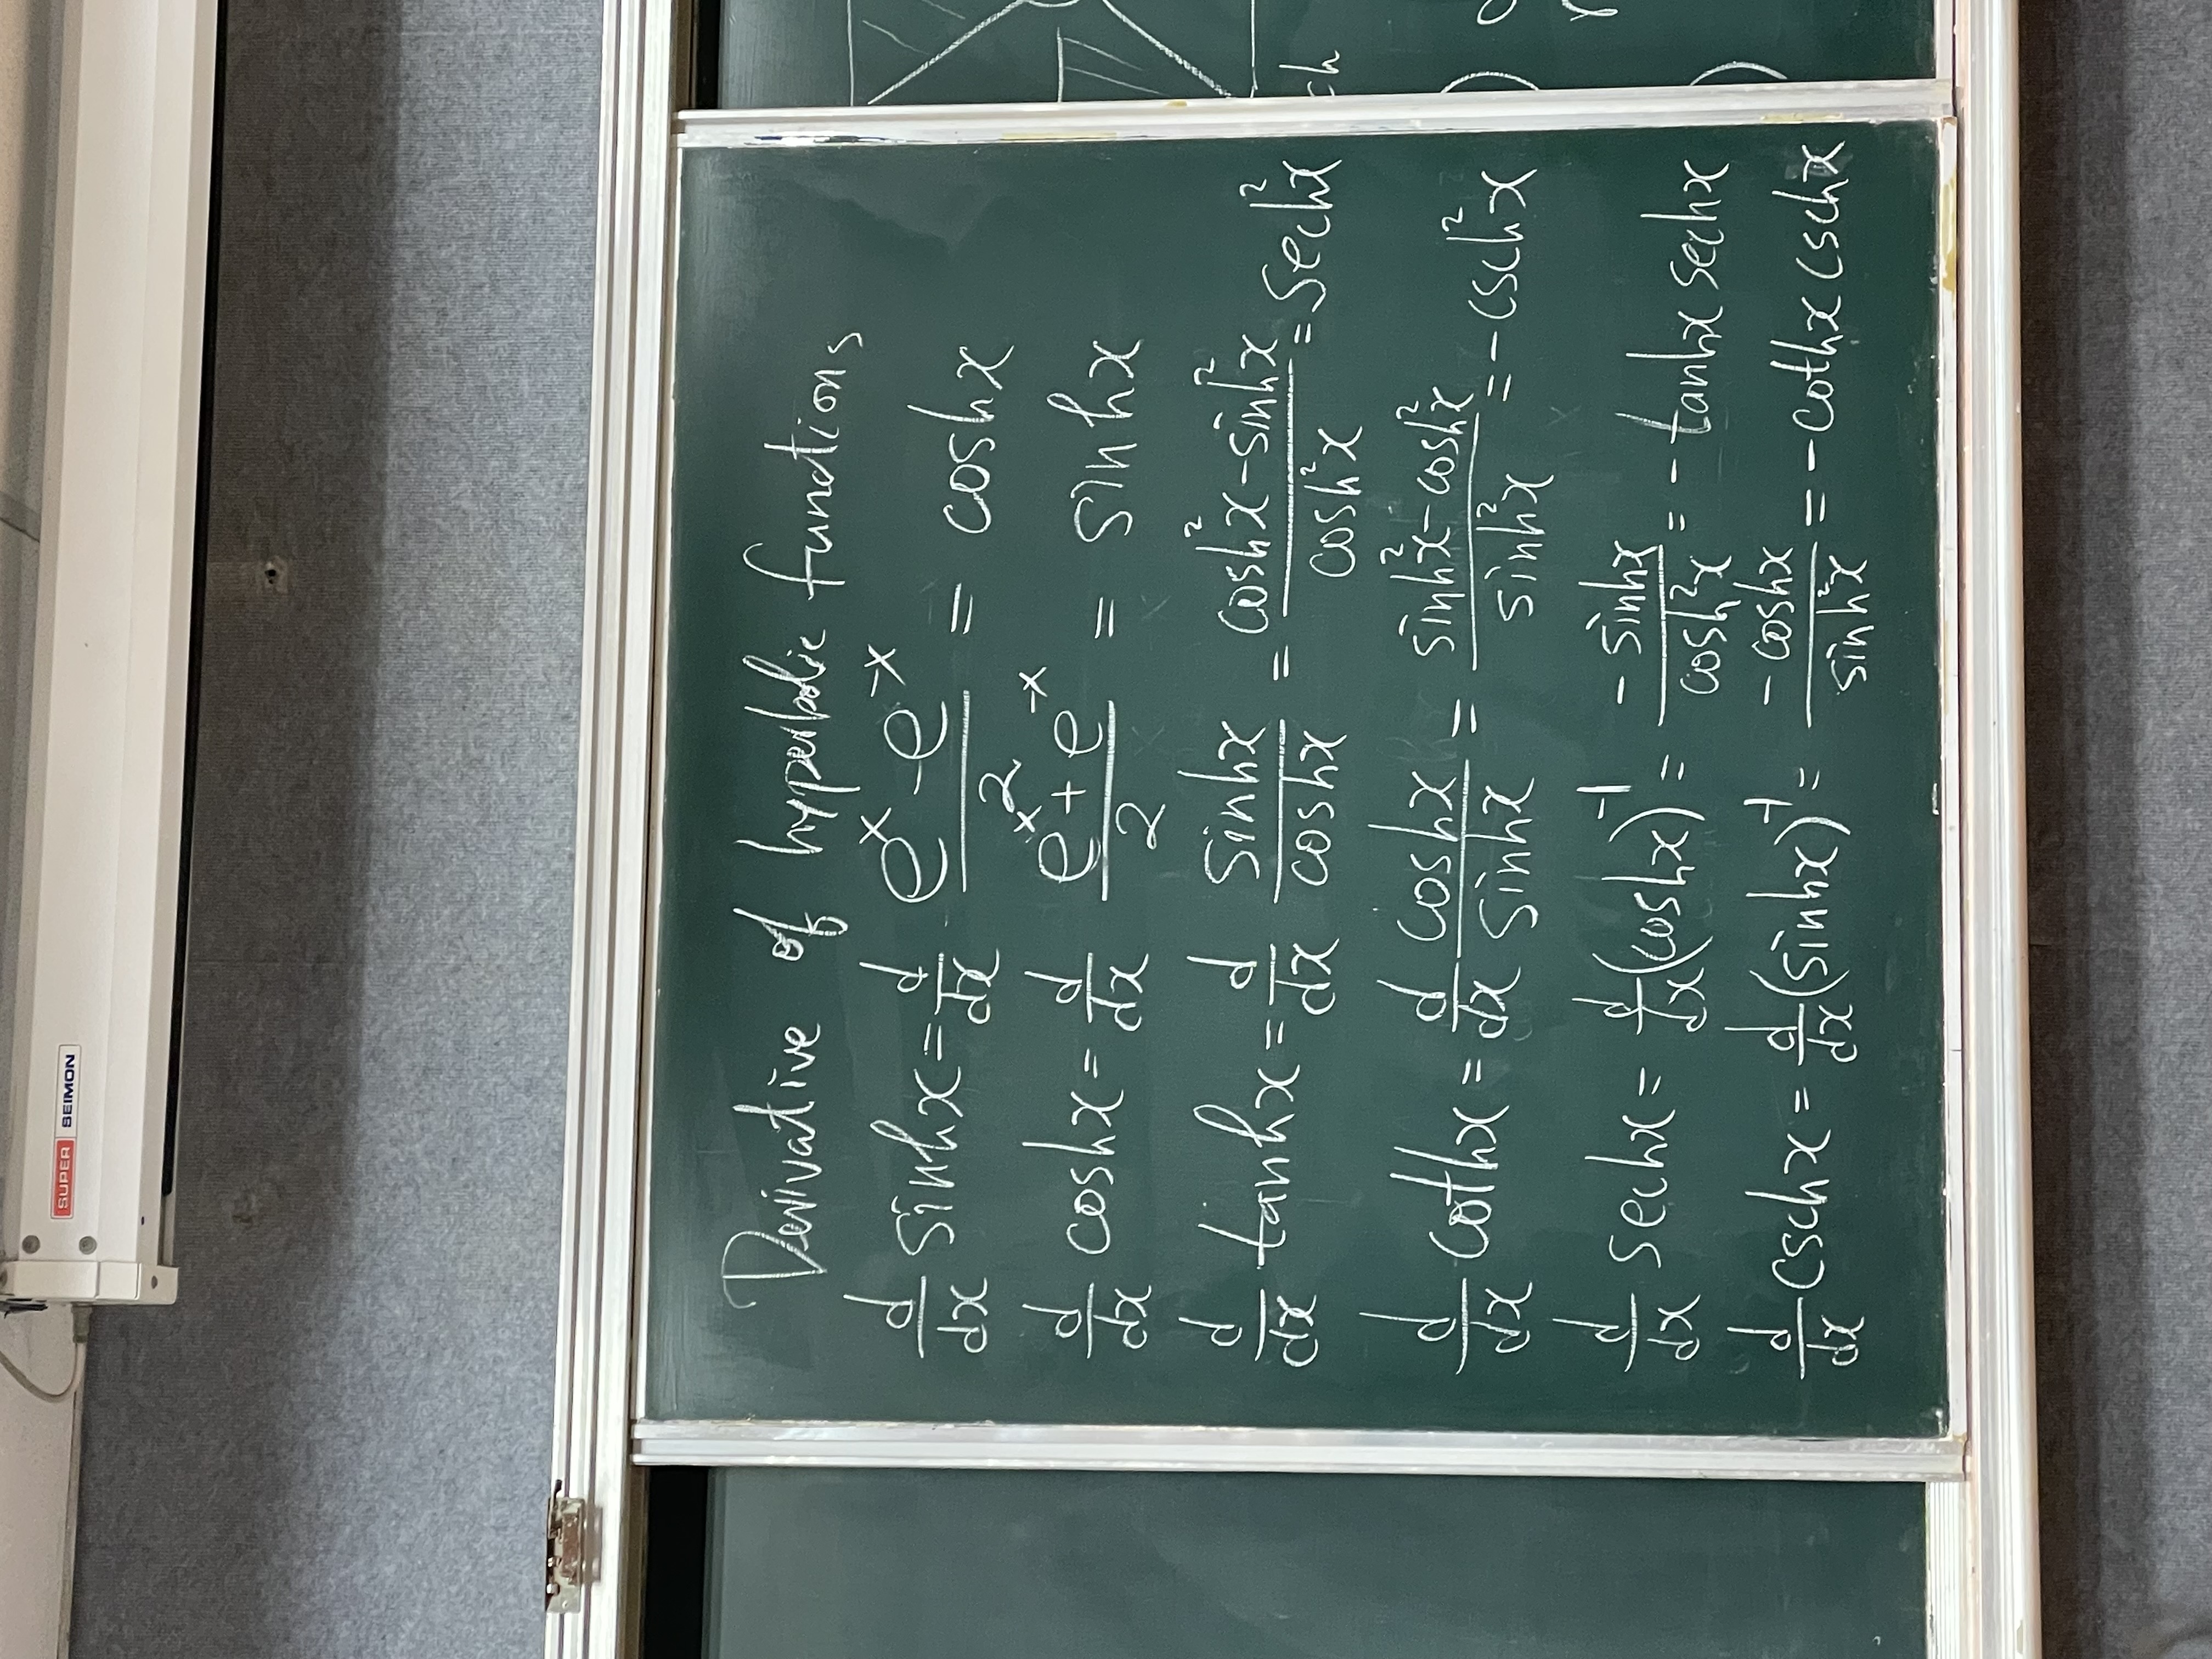 SUPER SEIMON
Derivative of hyperbolic functions
d/dx sinhx = d/dx (eˣ - e⁻ˣ)/2 = coshx
d/dx coshx = d/dx (eˣ + e⁻ˣ)/2 = sinhx
d/dx tanhx = d/dx sinhx/coshx = (cosh²x - sinh²x)/cosh²x = sech²x
d/dx cothx = d/dx coshx/sinhx = (sinh²x - cosh²x)/sinh²x = -csch²x
d/dx sechx = d/dx (coshx)⁻¹ = -sinhx/cosh²x = -tanhx sechx
d/dx cschx = d/dx (sinhx)⁻¹ = -coshx/sinh²x = -cothx cschx